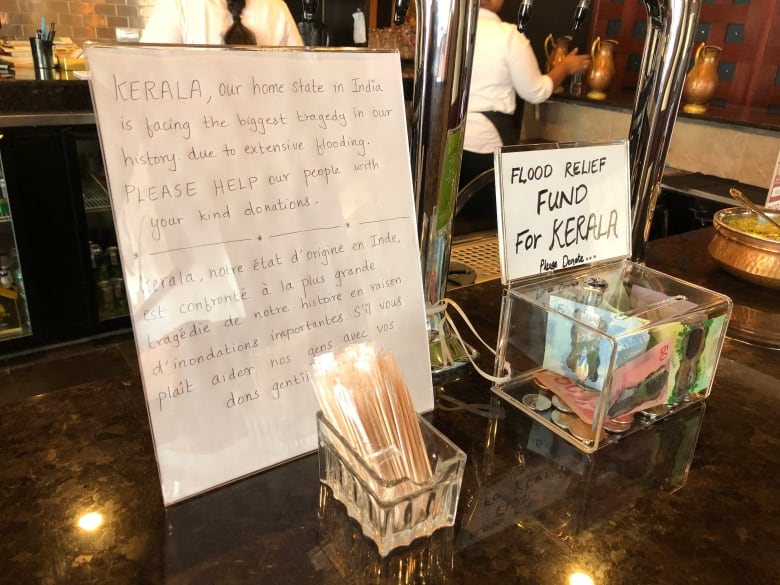 KERALA, our home state in India
is facing the biggest tragedy in our
history. due to extensive flooding.
PLEASE HELP our people with
your kind donations.
Kerala, notre état d'origine en Inde,
est confronté à la plus grande
tragédie de notre histoire en raison
d'inondations importantes. S'il vous
plaît aider nos gens avec vos
dons
FLOOD RELIEF
FUND
For KERALA
Please Donate...